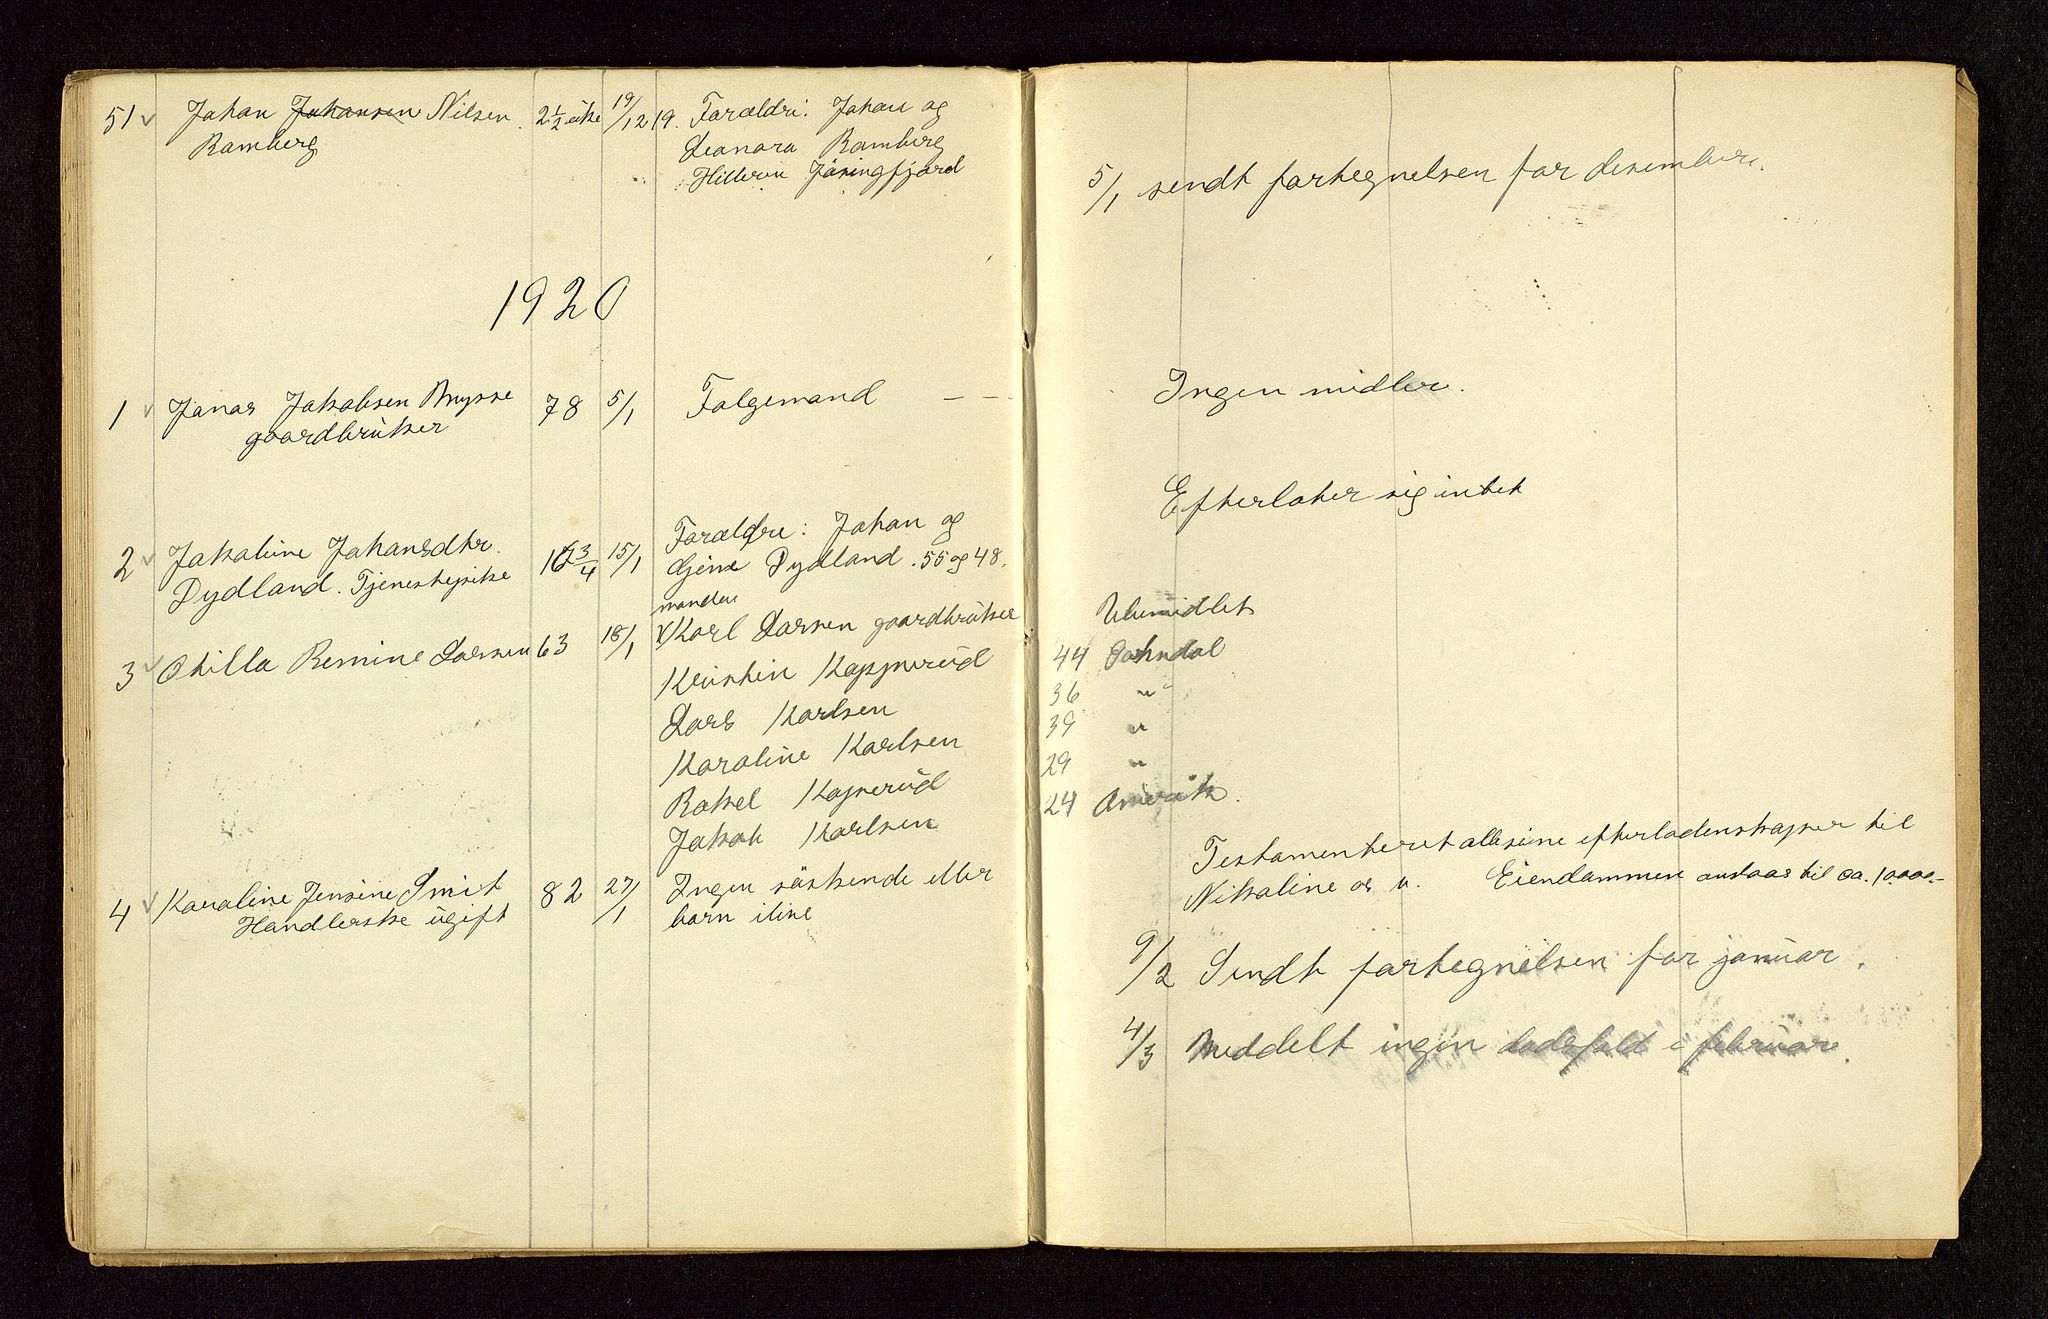 51 Johan Johansen Nilsen 2½ uke 19/12 19. Forældre: Johan og
Ramberg Leonora Ramberg
Hilleren Jøsingfjord
5/1 sendt fortegnelsen for desember.
1920
1 Jonas Jakobsen Mysse 78 5/1 Følgemand — — Ingen midler.
gaardbruker
2 Jakobine Johansdtr. 16 3/4 15/1 Forældre: Johan og Efterlater sig intet
Dydland. Tjenestepike Gjine Dydland. 55 og 48.
manden
3 Otilla Remine Larsen 63 18/1 Karl Larsen gaardbruker Ubemidlet
Kristin Kopperud 44 Sokndal
Lars Karlsen 36 "
Karoline Karlsen 39 "
Rakel Koperud 29 "
Jakob Karlsen 24 Amerika.
4 Karoline Jensine Smit 82 27/1 Ingen søskende eller Testamenteret alle sine efterladenskaper til
Handlerske ugift barn ilive Nikoline os u. Eiendammen anslaas til ca. 10000-
9/2 Sendt fortegnelsen for januar.
4/3 Meddelt ingen dødsfald i februar.